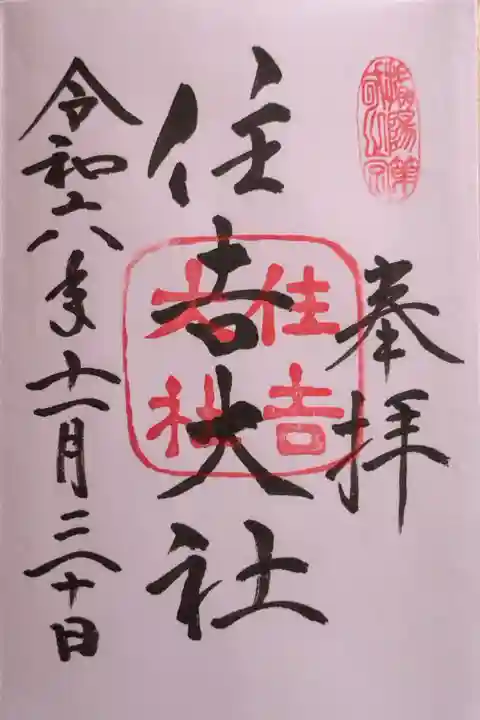 奉拝
住吉大社
令和六年十一月三十日
住吉
大社